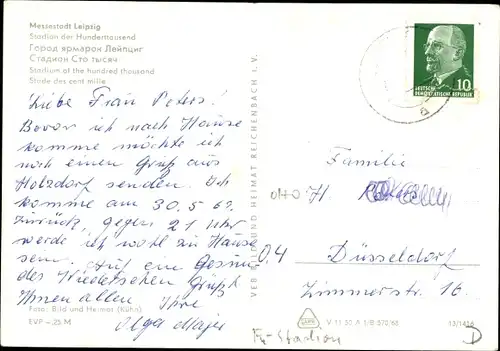 Messestadt Leipzig
Stadion der Hunderttausend
Город ярмарок Лейпциг
Стадион Сто тысяч
Stadium of the hundred thousand
Stade des cent mille
Liebe Frau Peters!
Bevor ich nach Hause
komme möchte ich
noch einen Gruß aus
Holzdorf senden. Ich
komme am 30.5.69.
zurück, gegen 21 Uhr
werde ich wohl zu Hause
sein. Auf ein Gesun
des Wiedersehen grüßt
Ihnen allen Ihre
Olga
Foto: Bild und Heimat (Kühn)
EVP –.25 M
VEB BILD UND HEIMAT REICHENBACH i. V.
10
DEUTSCHE
DEMOKRATISCHE REPUBLIK
Familie
H.
04
Düsseldorf
Zimmerstr. 16.
V 11 50 A 1/B 570/68
13/1416
Stadion
D